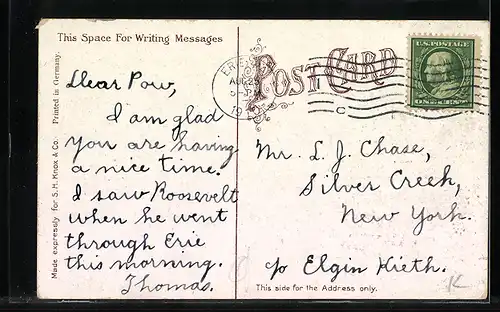 This Space For Writing Messages
POST CARD
U.S. POSTAGE
ONE CENT
Printed in Germany.
Made expressly for S. H. Knox & Co.
Dear Pow,
I am glad
you are having
a nice time.
I saw Roosevelt
when he went
through Erie
this morning.
Thomas.
C
Mr. L. J. Chase,
Silver Creek,
New York.
c/o Elgin Kieth.
This side for the Address only.
K